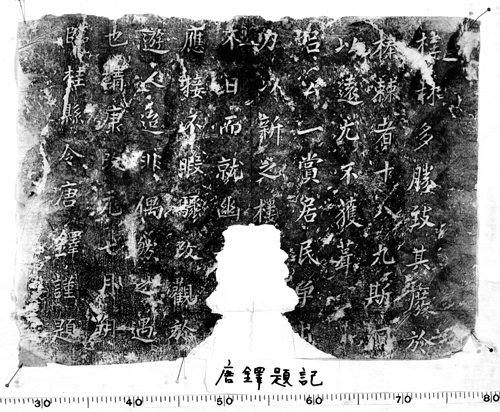 桂林多勝致其廢於
榛棘者十八九斯洞
以遠尤不獲葺
呂公一賞居民爭出
力以新之
不日而就幽
應接不暇驟改觀於
遊人非偶然之遇
也靖康改元七月朔
臨桂縣令唐鐸謹題
唐鐸題記
30 40 50 60 70 80